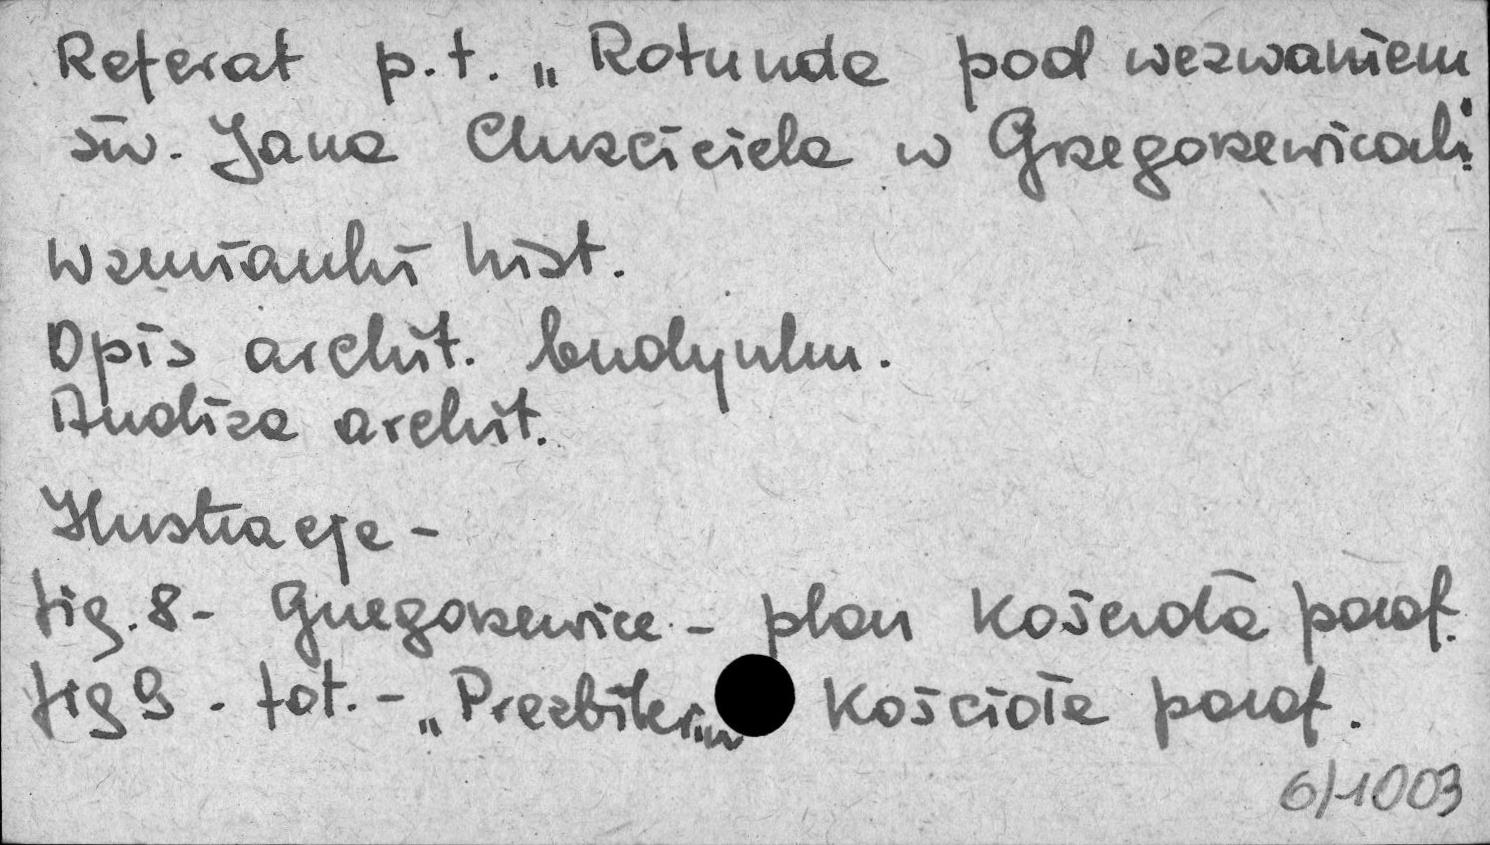 Referat p.t. „Rotunda pod wezwaniem
św. Jana Chrzciciela w Grzegorzewicach"
Wzmianki hist.
Opis archit. budynku.
Analiza archit.
Ilustracje -
fig. 8 - Grzegorzewice - plan Kościoła paraf.
fig 9 . fot. - „Prezbiterium Kościoła paraf.
6/1003